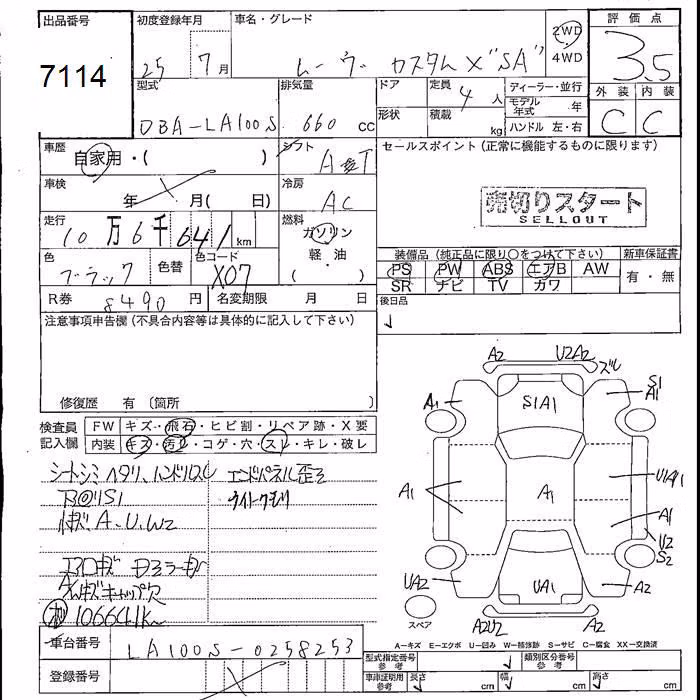 出品番号 初度登録年月 車名・グレード 2WD 評価点
7114 25 7月 ムーヴ カスタム X "SA" 4WD 3.5
型式 排気量 ドア 定員 4人 ディーラー・並行 外装 内装
DBA-LA100S 660cc 形状 積載 kg モデル年式 年 C C
ハンドル 左・右
車歴 自家用・( ) シフト AT セールスポイント (正常に機能するものに限ります)
車検 年 月( 日) 冷房 AC
売切りスタート
SELLOUT
走行 10万6千641km 燃料 ガソリン
軽・油
( )
色 ブラック 色替 色コード X07
装備品 (純正品に限り○をつけて下さい) 新車保証書
PS PW ABS エアB AW 有・無
SR ナビ TV カワ
R券 8490円 名変期限 月 日 後日品
注意事項申告欄 (不具合内容等は具体的に記入して下さい)
修復歴 有 (箇所 )
検査員 FW キズ・飛石・ヒビ割・リペア跡・X要
記入欄 内装 キズ・汚レ・コゲ・穴・スレ・キレ・破レ
シートシミ ヘタリ、ハンドルスレ エンドパネル歪ミ
小キズ、A、U、W2
エアロキズ
キャップ欠
106641K
A2 U2A2 ズレ
A1 S1A1 S1 A1
A1 A1 U1A1
A1
U2
S2
UA2 UA1 A2
A2U2 A2
スペア
A-キズ E-エクボ U-凹み W-補修跡 S-サビ C-腐食 XX-交換済
車台番号 LA100S-0258253
型式指定番号 参考 類別区分番号 参考
登録番号 車庫証明用 参考 長さ cm 幅 cm 高さ cm